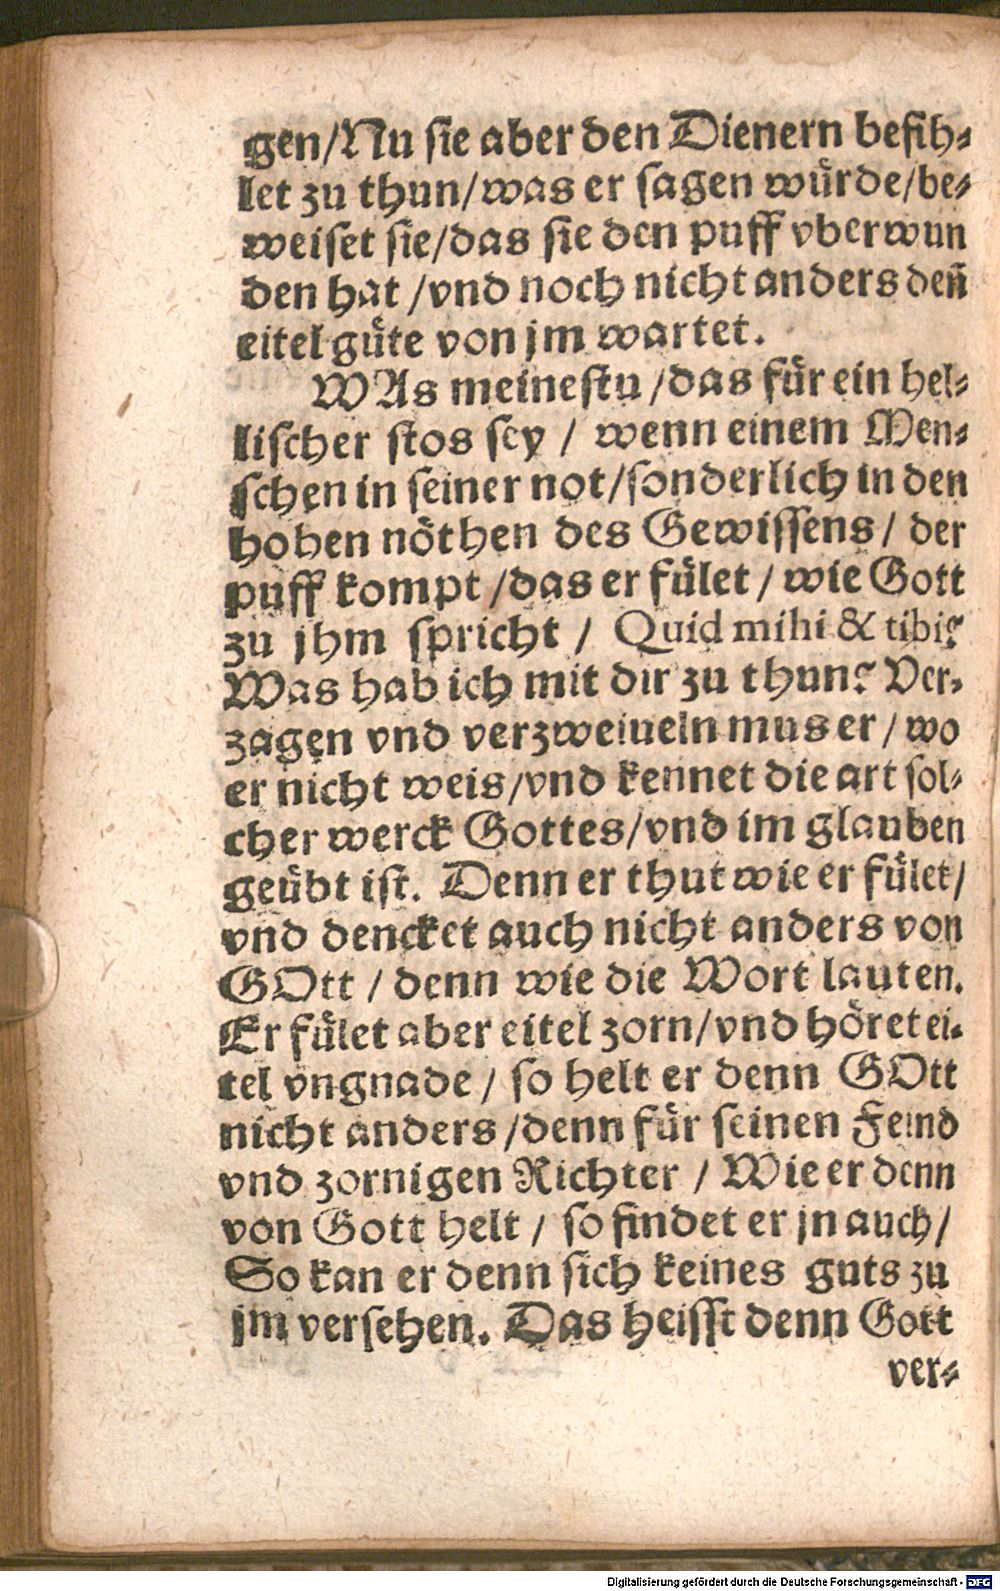 gen/Nu sie aber den Dienern befih⸗
let zu thun/was er sagen würde/be⸗
weiset sie/das sie den puff vberwun
den hat /vnd noch nicht anders deñ
eitel güte von jm wartet.
WAs meinestu /das für ein hel⸗
lischer stos sey / wenn einem Men⸗
schen in seiner not/sonderlich in den
hohen nöthen des Gewissens/ der
puff kompt /das er fület / wie Gott
zu jhm spricht / Quid mihi & tibi?
Was hab ich mit dir zu thun? Ver⸗
zagen vnd verzweiueln mus er / wo
er nicht weis/vnd kennet die art sol⸗
cher werck Gottes/vnd im glauben
geübt ist. Denn er thut wie er fület/
vnd dencket auch nicht anders von
GOtt / denn wie die Wort lauten.
Er fület aber eitel zorn/vnd höret ei⸗
tel vngnade / so helt er denn GOtt
nicht anders /denn für seinen Feind
vnd zornigen Richter / Wie er denn
von Gott helt / so findet er jn auch/
So kan er denn sich keines guts zu
jm versehen. Das heisst denn Gott
ver⸗
Digitalisierung gefördert durch die Deutsche Forschungsgemeinschaft - DFG